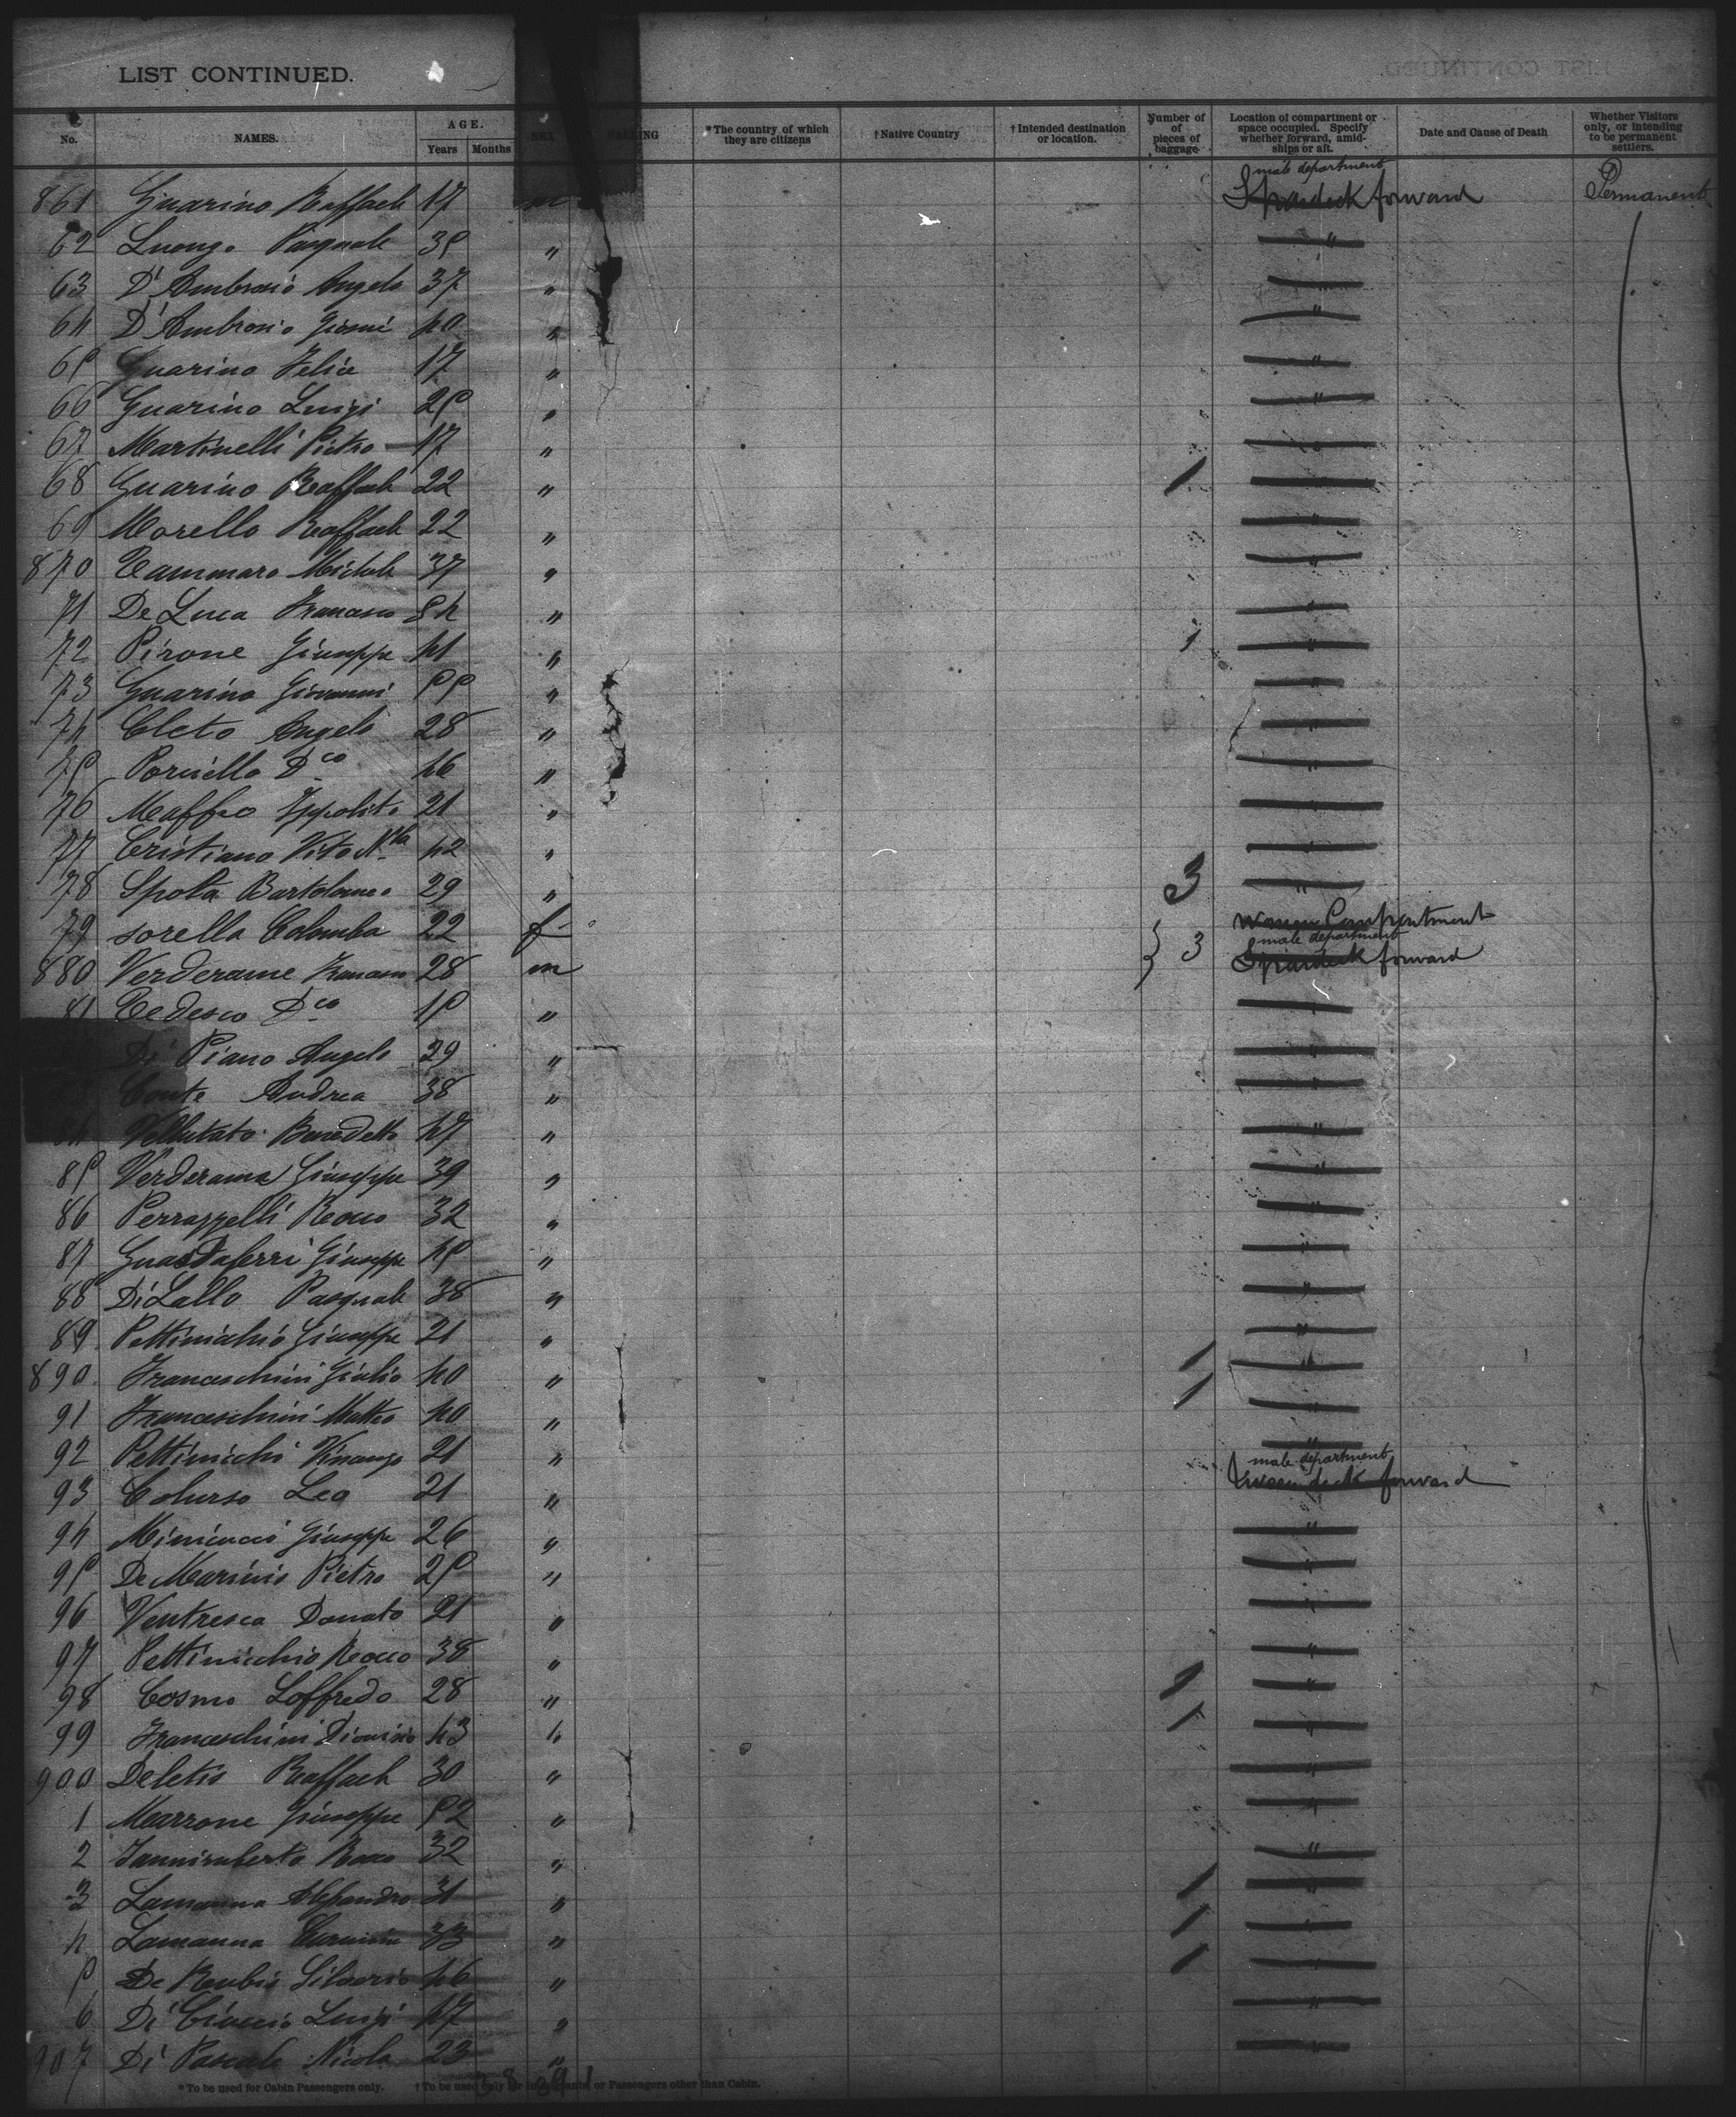 LIST CONTINUED.
No. NAMES. AGE. Years Months SEX *The country of which they are citizens †Native Country †Intended destination or location. Number of of pieces of baggage Location of compartment or space occupied. Specify whether forward, amidships or aft. Date and Cause of Death Whether Visitors only, or intending to be permanent settlers.
male department
861 Guarino Raffaele 17 m Spardeck forward Permanent
62 Luongo Pasquale 35 " "
63 D'Ambrosio Angelo 37 " "
64 D'Ambrosio Giosuè 40 " "
65 Guarino Felice 17 " "
66 Guarino Luigi 25 " "
67 Martinelli Pietro 17 " "
68 Guarino Raffaele 22 " 1 "
69 Morello Raffaele 22 " "
870 Cammaro Michele 37 " "
71 De Luca Francesco 54 " "
72 Pirone Giuseppe 41 " 1 "
73 Guarino Giovanni 55 " "
74 Cleto Angelo 28 " "
75 Porciello Dco 46 " "
76 Maffeo Ippolito 21 " "
77 Cristiano Vito Nla 42 " "
78 Spota Bartolomeo 29 " 3 "
79 sorella Colomba 22 f Women Compartment
male department
880 Verderame Francesco 28 m 3 Spardeck forward
81 Tedesco Dco 15 " "
Di Piano Angelo 29 " "
Conte Andrea 38 " "
Vellutato Benedetto 47 " "
85 Verderame Giuseppe 39 " "
86 Perrazzelli Rocco 32 " "
87 Guardaferri Giuseppe 45 " "
88 DiLallo Pasquale 38 " "
89 Pettinichio Giuseppe 21 " "
890 Franceschini Giulio 40 " 1 "
91 Franceschini Matteo 40 " 1 "
92 Pettinicchi Vincenzo 21 " "
male department
93 Colurso Leo 21 " deck forward
94 Minicucci Giuseppe 26 " "
95 De Marinis Pietro 25 " "
96 Ventresca Donato 21 " "
97 Pettinicchio Rocco 38 " "
98 Cosmo Loffredo 28 " 1 "
99 Franceschini Dionisio 43 " 1 "
900 Deletis Raffaele 30 " "
1 Marrone Giuseppe 52 " "
2 Janniruberto Rocco 32 " "
3 Lamanna Alessandro 31 " 1 "
4 Lamanna Carmine 33 " 1 "
5 De Rubis Silverio 46 " 1 "
6 Di Ciuccio Luigi 47 " "
907 Di Pascale Nicola 23 " "
*To be used for Cabin Passengers only. †To be used only for Immigrants, or Passengers other than Cabin.